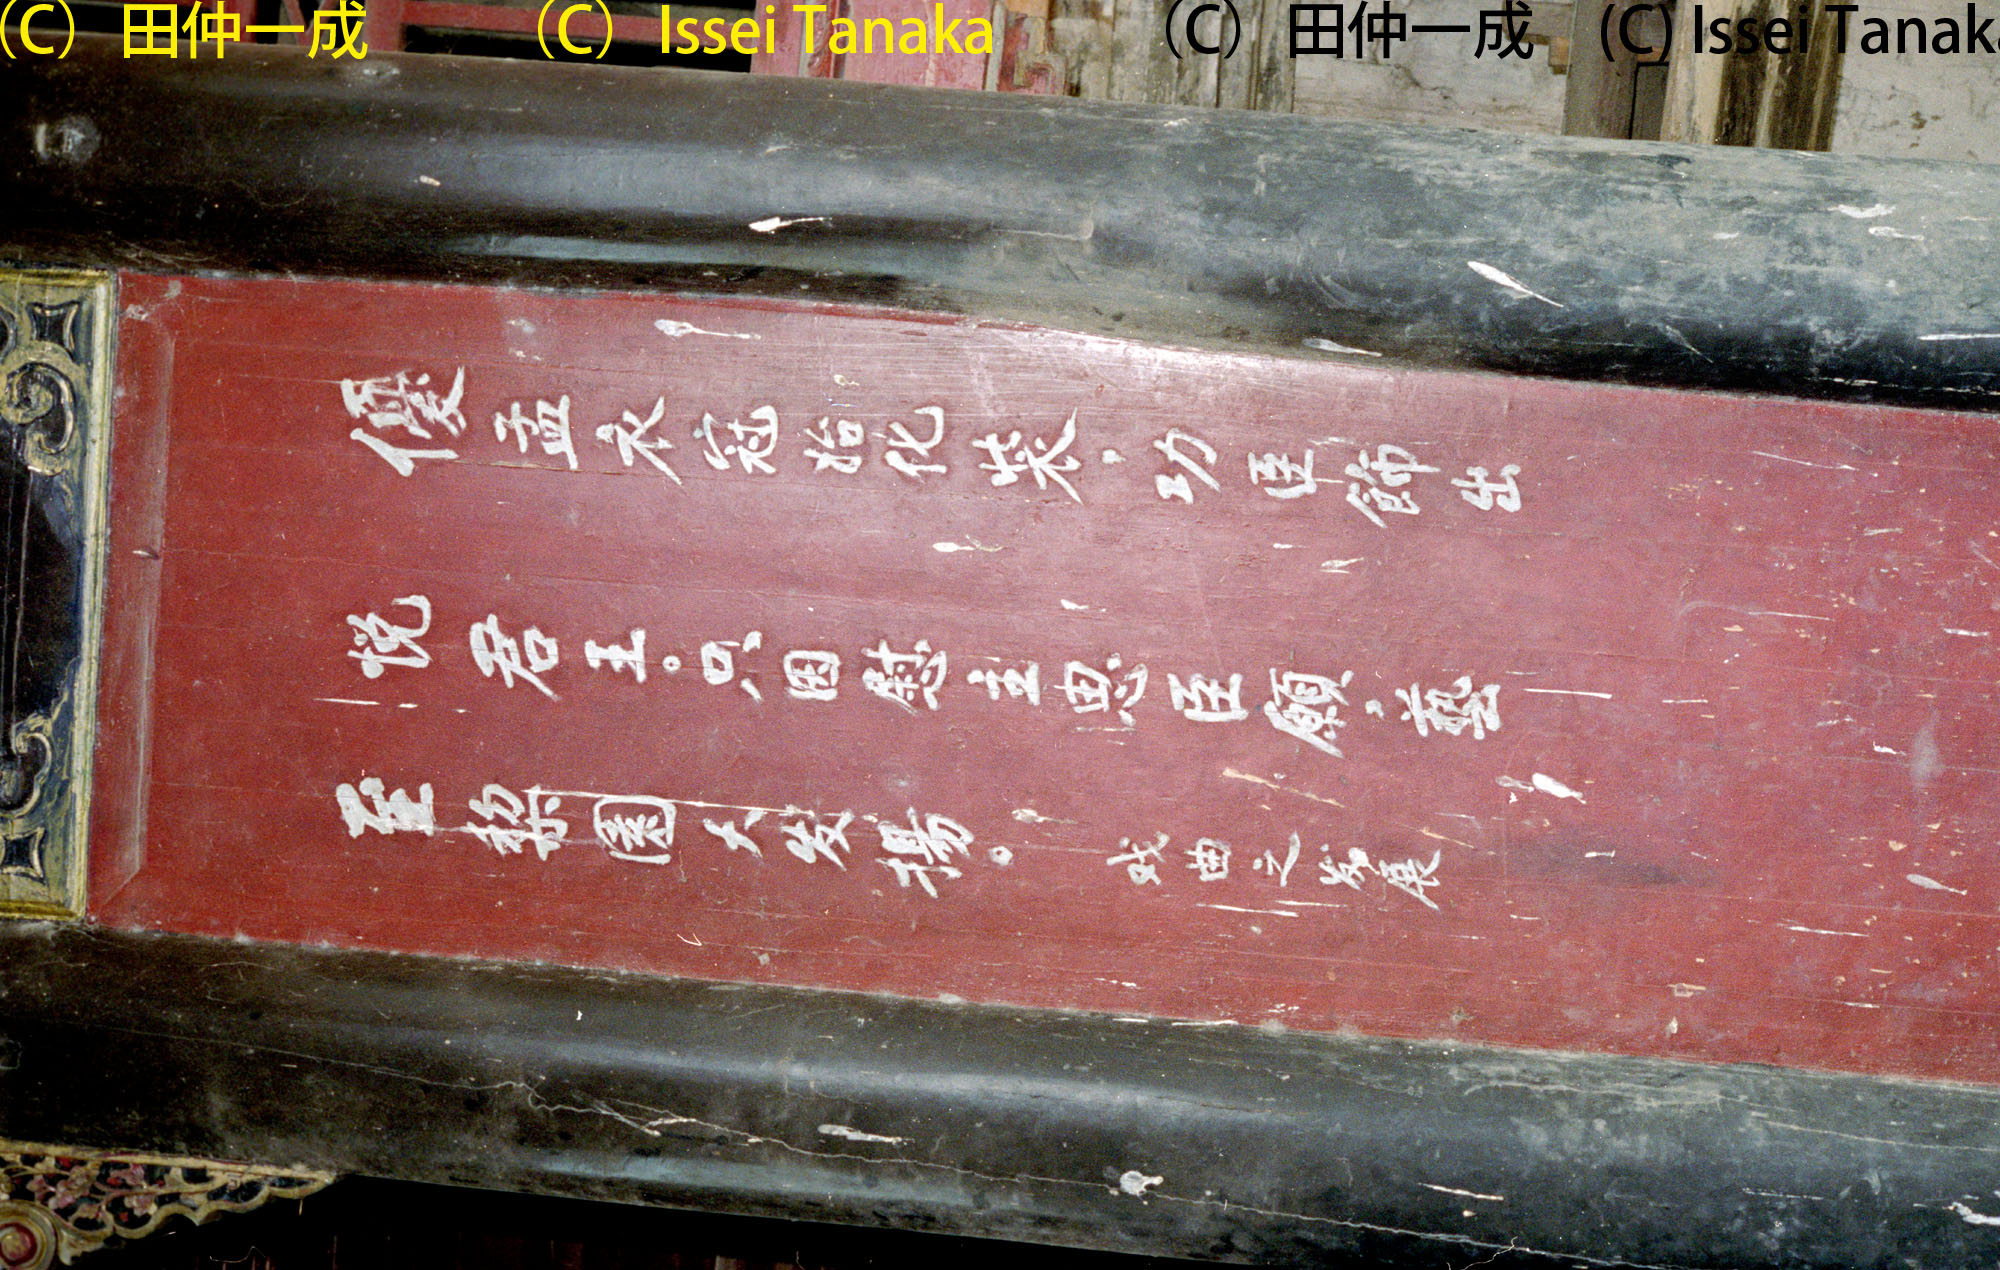 (C) 田仲一成 (C) Issei Tanaka (C) 田仲一成 (C) Issei Tanaka
優孟衣冠始化裝,功臣飾出
悅君王。只因慰主思臣願,藝
至梨園大发揚。 戏曲之发展